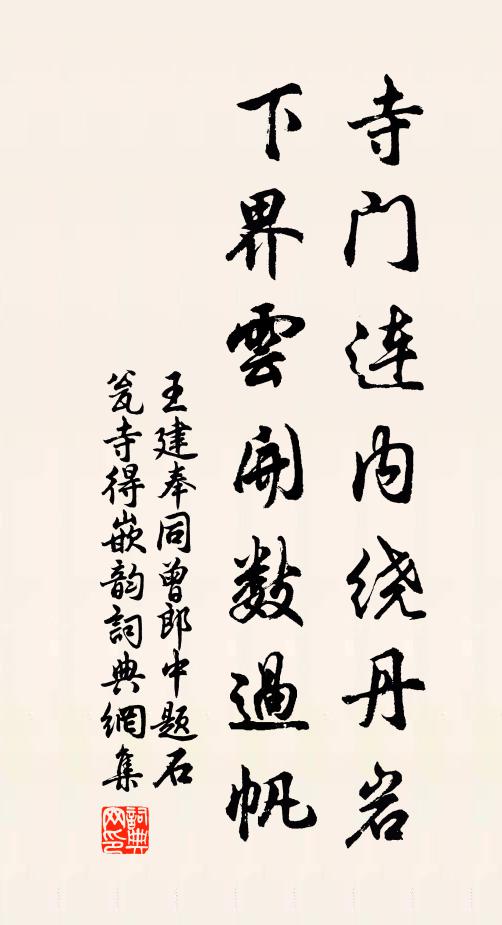 寺门连内绕丹岩
下界雲開数過帆
王建奉同曾郎中题石
瓮寺得嵌韵詞典網集
詞典
网印